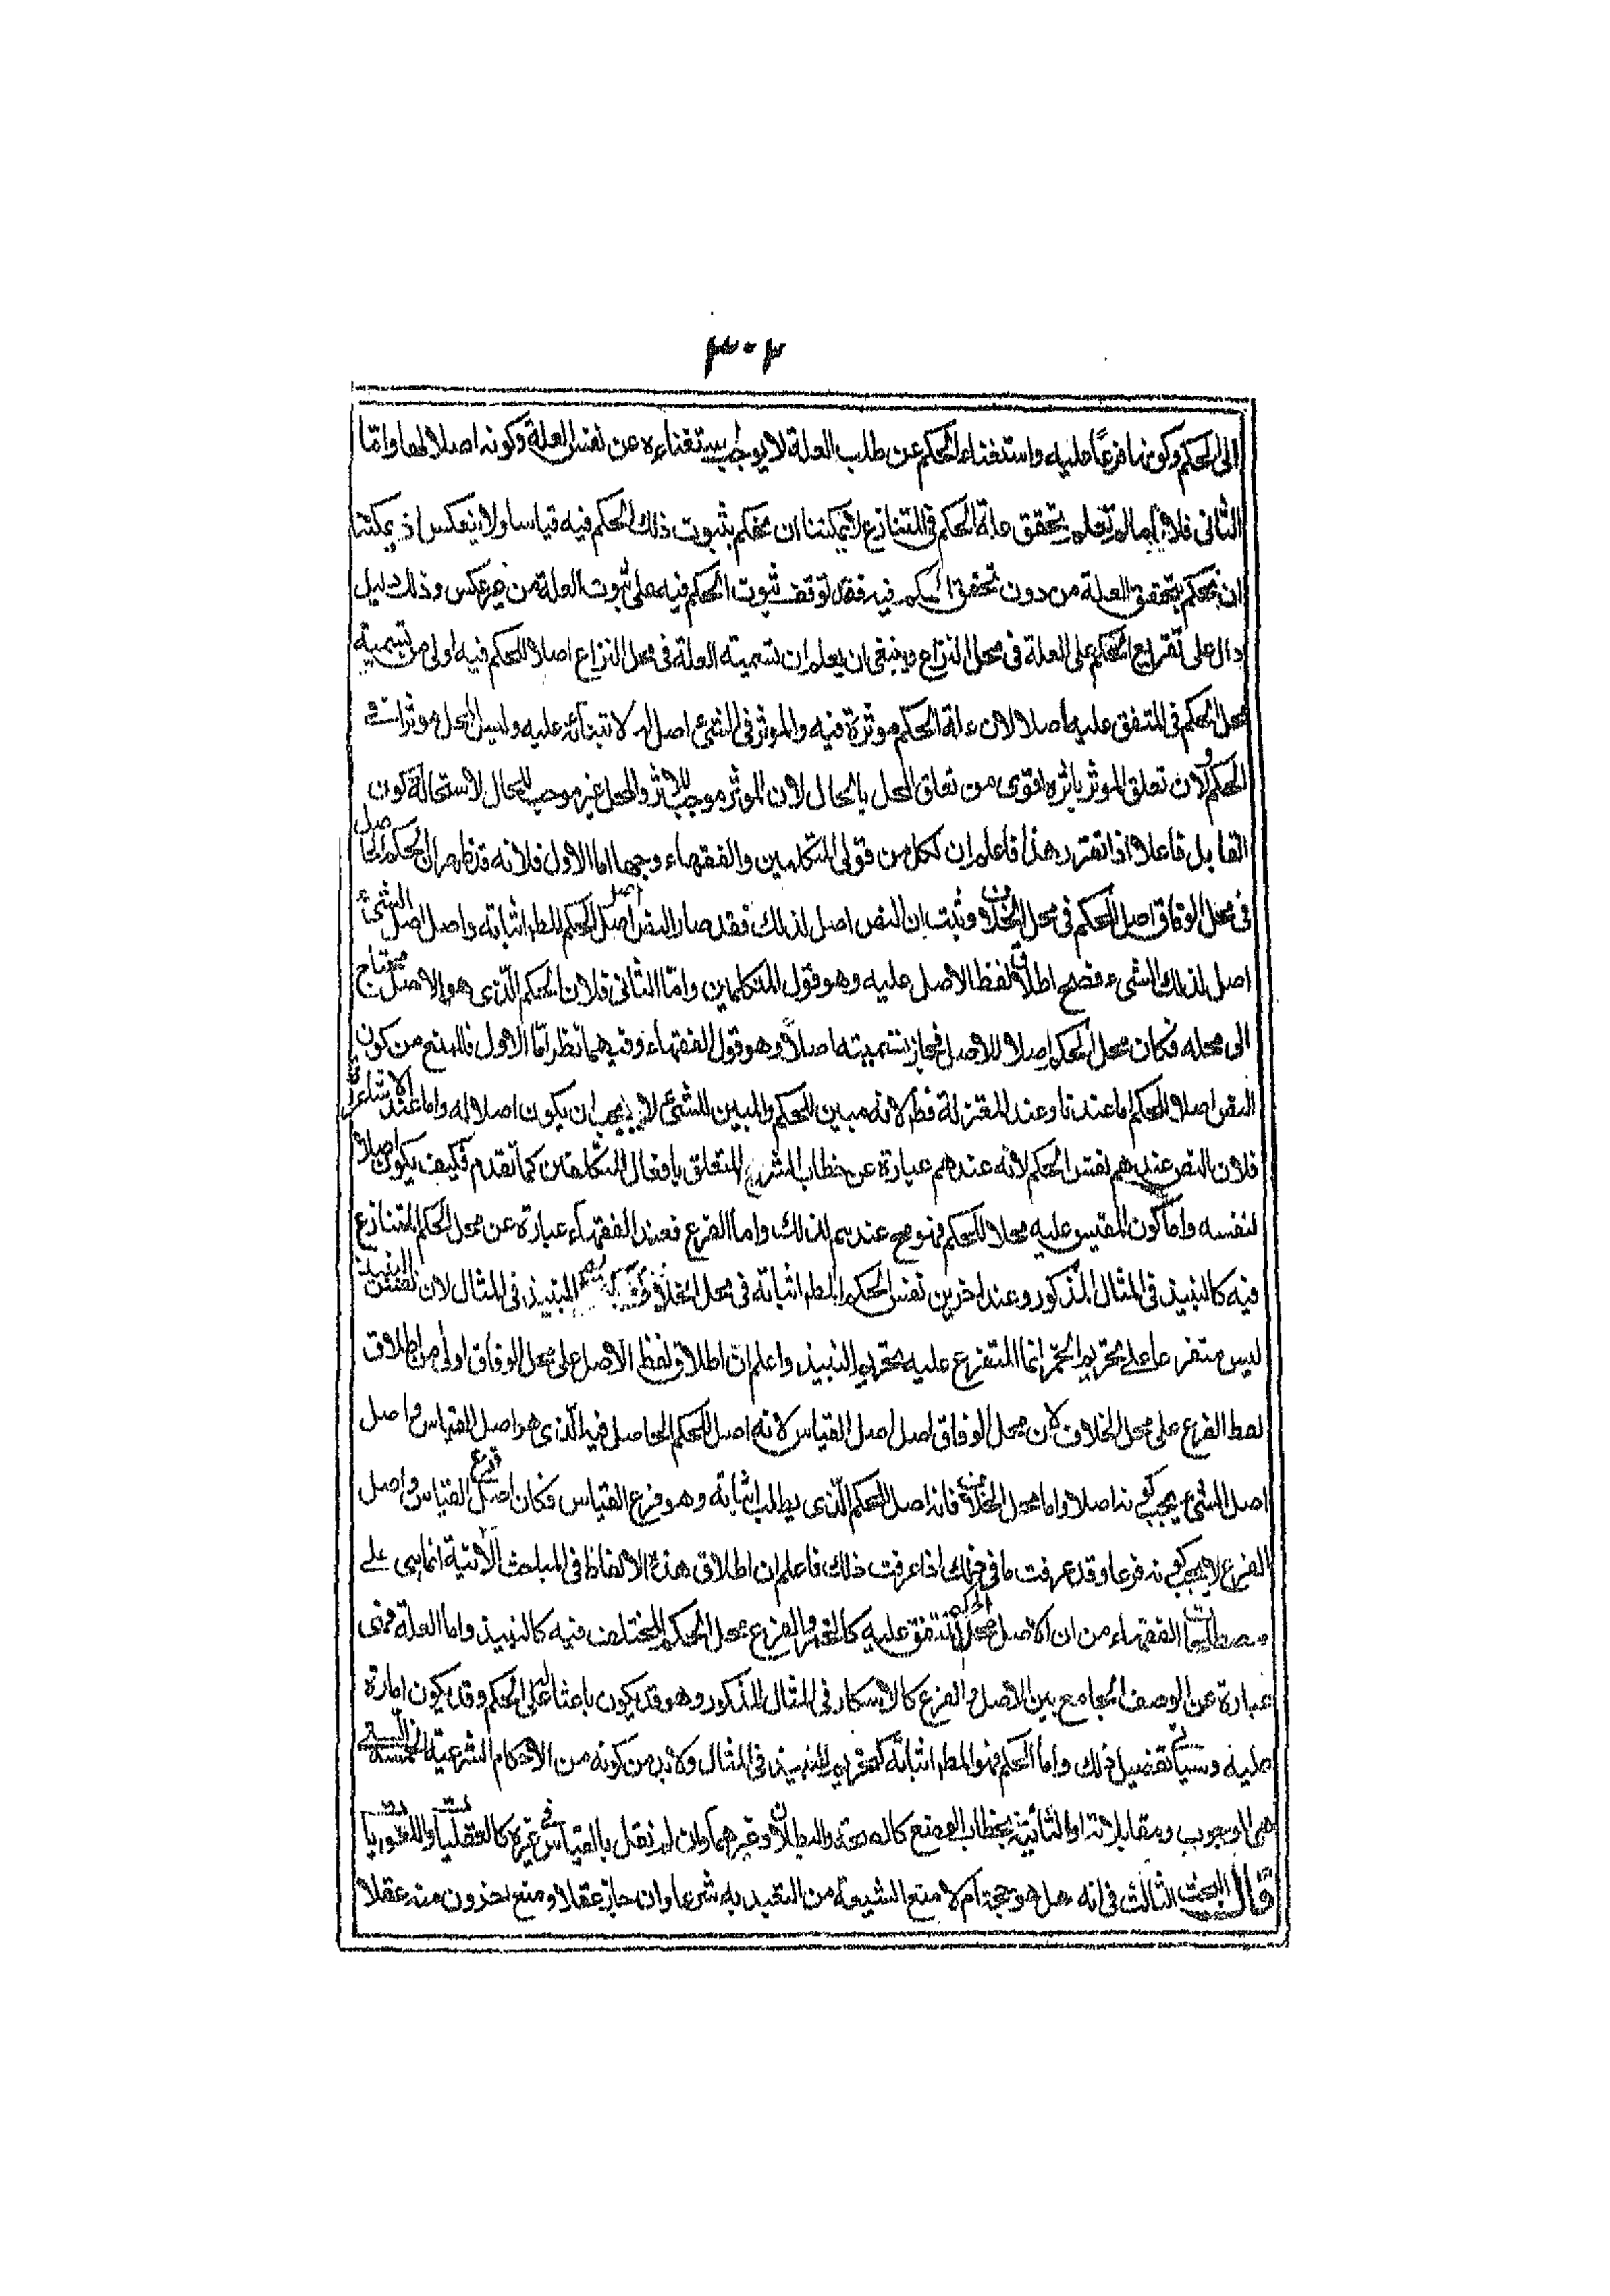 ٣٠٣
الى الحكم وكونها فرعًا عليه واستغناء الحكم عن طلب العلة لا يوجب استغناءه عن نفس العلة وكونه اصلا لها واما
الثانى فلانا ما لم نعلم بتحقق علة الحكم فى المتنازع لا يمكننا ان نحكم بثبوت ذلك الحكم فيه قياسا ولا ينعكس اذ يمكننا
ان نحكم بتحقق العلة من دون تحقق الحكم فيه فقد توقف ثبوت الحكم فيه على ثبوت العلة من غير عكس وذلك دليل
دال على تفريع الحكم على العلة فى محل النزاع وينبغى ان يعلم ان تسمية العلة فى محل النزاع اصلا للحكم فيه اولى من تسمية
محل الحكم فى المتفق عليه اصلا لان علة الحكم موثرة فيه والموثر فى الشئ اصل له لابتنائه عليه وليس المحل موثرا فى
الحكم ولان تعلق الموثر باثره اقوى من تعلق المحل بالحال لان الموثر موجب للاثر والمحل غير موجب للحال لاستحالة كون
القابل فاعلا اذا تقرر هذا فاعلم ان لكل من قولى المتكلمين والفقهاء وجها اما الاول فلانه قد ظهر ان الحكم الحاصل
فى محل الوفاق اصل للحكم فى محل الخلاف وثبت ان النص اصل لذلك فقد صار النص اصل اصل الحكم المط اثباته واصل اصل الشئ
اصل لذلك الشىء فصح اطلاق لفظ الاصل عليه وهو قول المتكلمين واما الثانى فلان الحكم الذى هو الاصل محتاج
الى محله فكان محل الحكم اصلا للاصل فجاز تسميته اصلا وهو قول الفقهاء وفيهما نظر اما الاول فللمنع من كون
النص اصلا للحكم اما عندنا وعند المعتزلة فظ لانه مبين للحكم والمبين للشئ لا يجب ان يكون اصلا له واما عند الاشاعرة
فلان النص عندهم نفس الحكم لانه عندهم عبارة عن خطاب الشرع المتعلق بافعال المكلفين كما تقدم فكيف يكون اصلا
لنفسه واما كون المقيس عليه محلا للحكم فهو صح عندهم لذلك واما الفرع فعند الفقهاء عبارة عن محل الحكم المتنازع
فيه كالنبيذ فى المثال المذكور وعند اخرين نفس الحكم المط اثباته فى محل الخلاف النبيذ فى المثال لان نفس النبيذ
ليس متفرعا على تحريم الخمر انما المتفرع عليه تحريم النبيذ واعلم ان اطلاق لفظ الاصل على محل الوفاق اولى من اطلاق
لفظ الفرع على محل الخلاف لان محل الوفاق اصل اصل القياس لانه اصل للحكم الحاصل فيه الذى هو اصل القياس واصل
اصل الشئ يجب كونه اصلا واما محل الخلاف فانه اصل للحكم الذى يطلب اثباته وهو فرع القياس فكان اصل فرع القياس واصل
الفرع لا يجب كونه فرعا وقد عرفت ما فى ذلك اذا عرفت ذلك فاعلم ان اطلاق هذه الالفاظ فى المباحث الآتية انما هى على
مصطلحات الفقهاء من ان الاصل محل الحكم المتفق عليه كالخمر والفرع محل الحكم المختلف فيه كالنبيذ واما العلة فهى
عبارة عن الوصف الجامع بين الاصل والفرع كالاسكار فى المثال المذكور وهو قد يكون باعثا على الحكم وقد يكون امارة
عليه وسيأتى تفصيل ذلك واما الحكم فهو المط اثباته كتحريم النبيذ فى المثال ولابد من كونه من الاحكام الشرعية الخمسة التى
هى الوجوب ومقابلاته او الثابتة بخطاب الوضع كالصحة والبطلان وغيرهما وان لم نقل بالقياس فى غيره كالعقليات واللغويات
قال البحث الثالث فى انه هل هو حجة ام لا منع الشيعة من التعبد به شرعا وان جاز عقلا ومنع اخرون منه عقلا